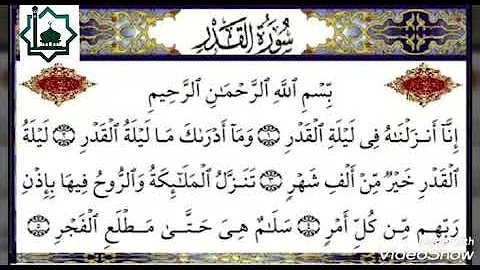 سُورَةُ الْقَدْرِ
بِسْمِ اللَّهِ الرَّحْمَـٰنِ الرَّحِيمِ
إِنَّآ أَنزَلْنَـٰهُ فِى لَيْلَةِ الْقَدْرِ ١ وَمَآ أَدْرَىٰكَ مَا لَيْلَةُ الْقَدْرِ ٢ لَيْلَةُ
الْقَدْرِ خَيْرٌ مِّنْ أَلْفِ شَهْرٍ ٣ تَنَزَّلُ الْمَلَـٰٓئِكَةُ وَالرُّوحُ فِيهَا بِإِذْنِ
رَبِّهِم مِّن كُلِّ أَمْرٍ ٤ سَلَـٰمٌ هِىَ حَتَّىٰ مَطْلَعِ الْفَجْرِ ٥
VideoShow